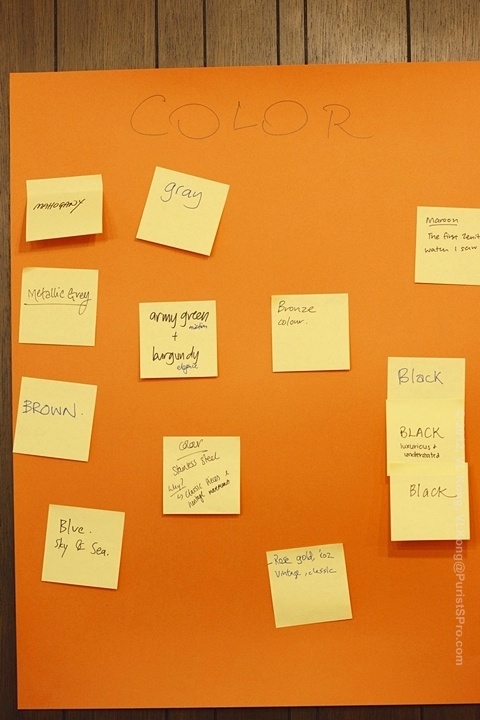 COLOR
MAHOGANY
gray
Maroon
The first Zenith
watch I saw
Metallic Grey
army green
modern
+
burgundy
elegant
Bronze
colour.
Black
BROWN.
BLACK
luxurious +
understated
Colour
Stainless Steel
Why?
Black
Blue.
Sky & Sea.
- Rose gold, coz
vintage, classic
@PuristSPro.com